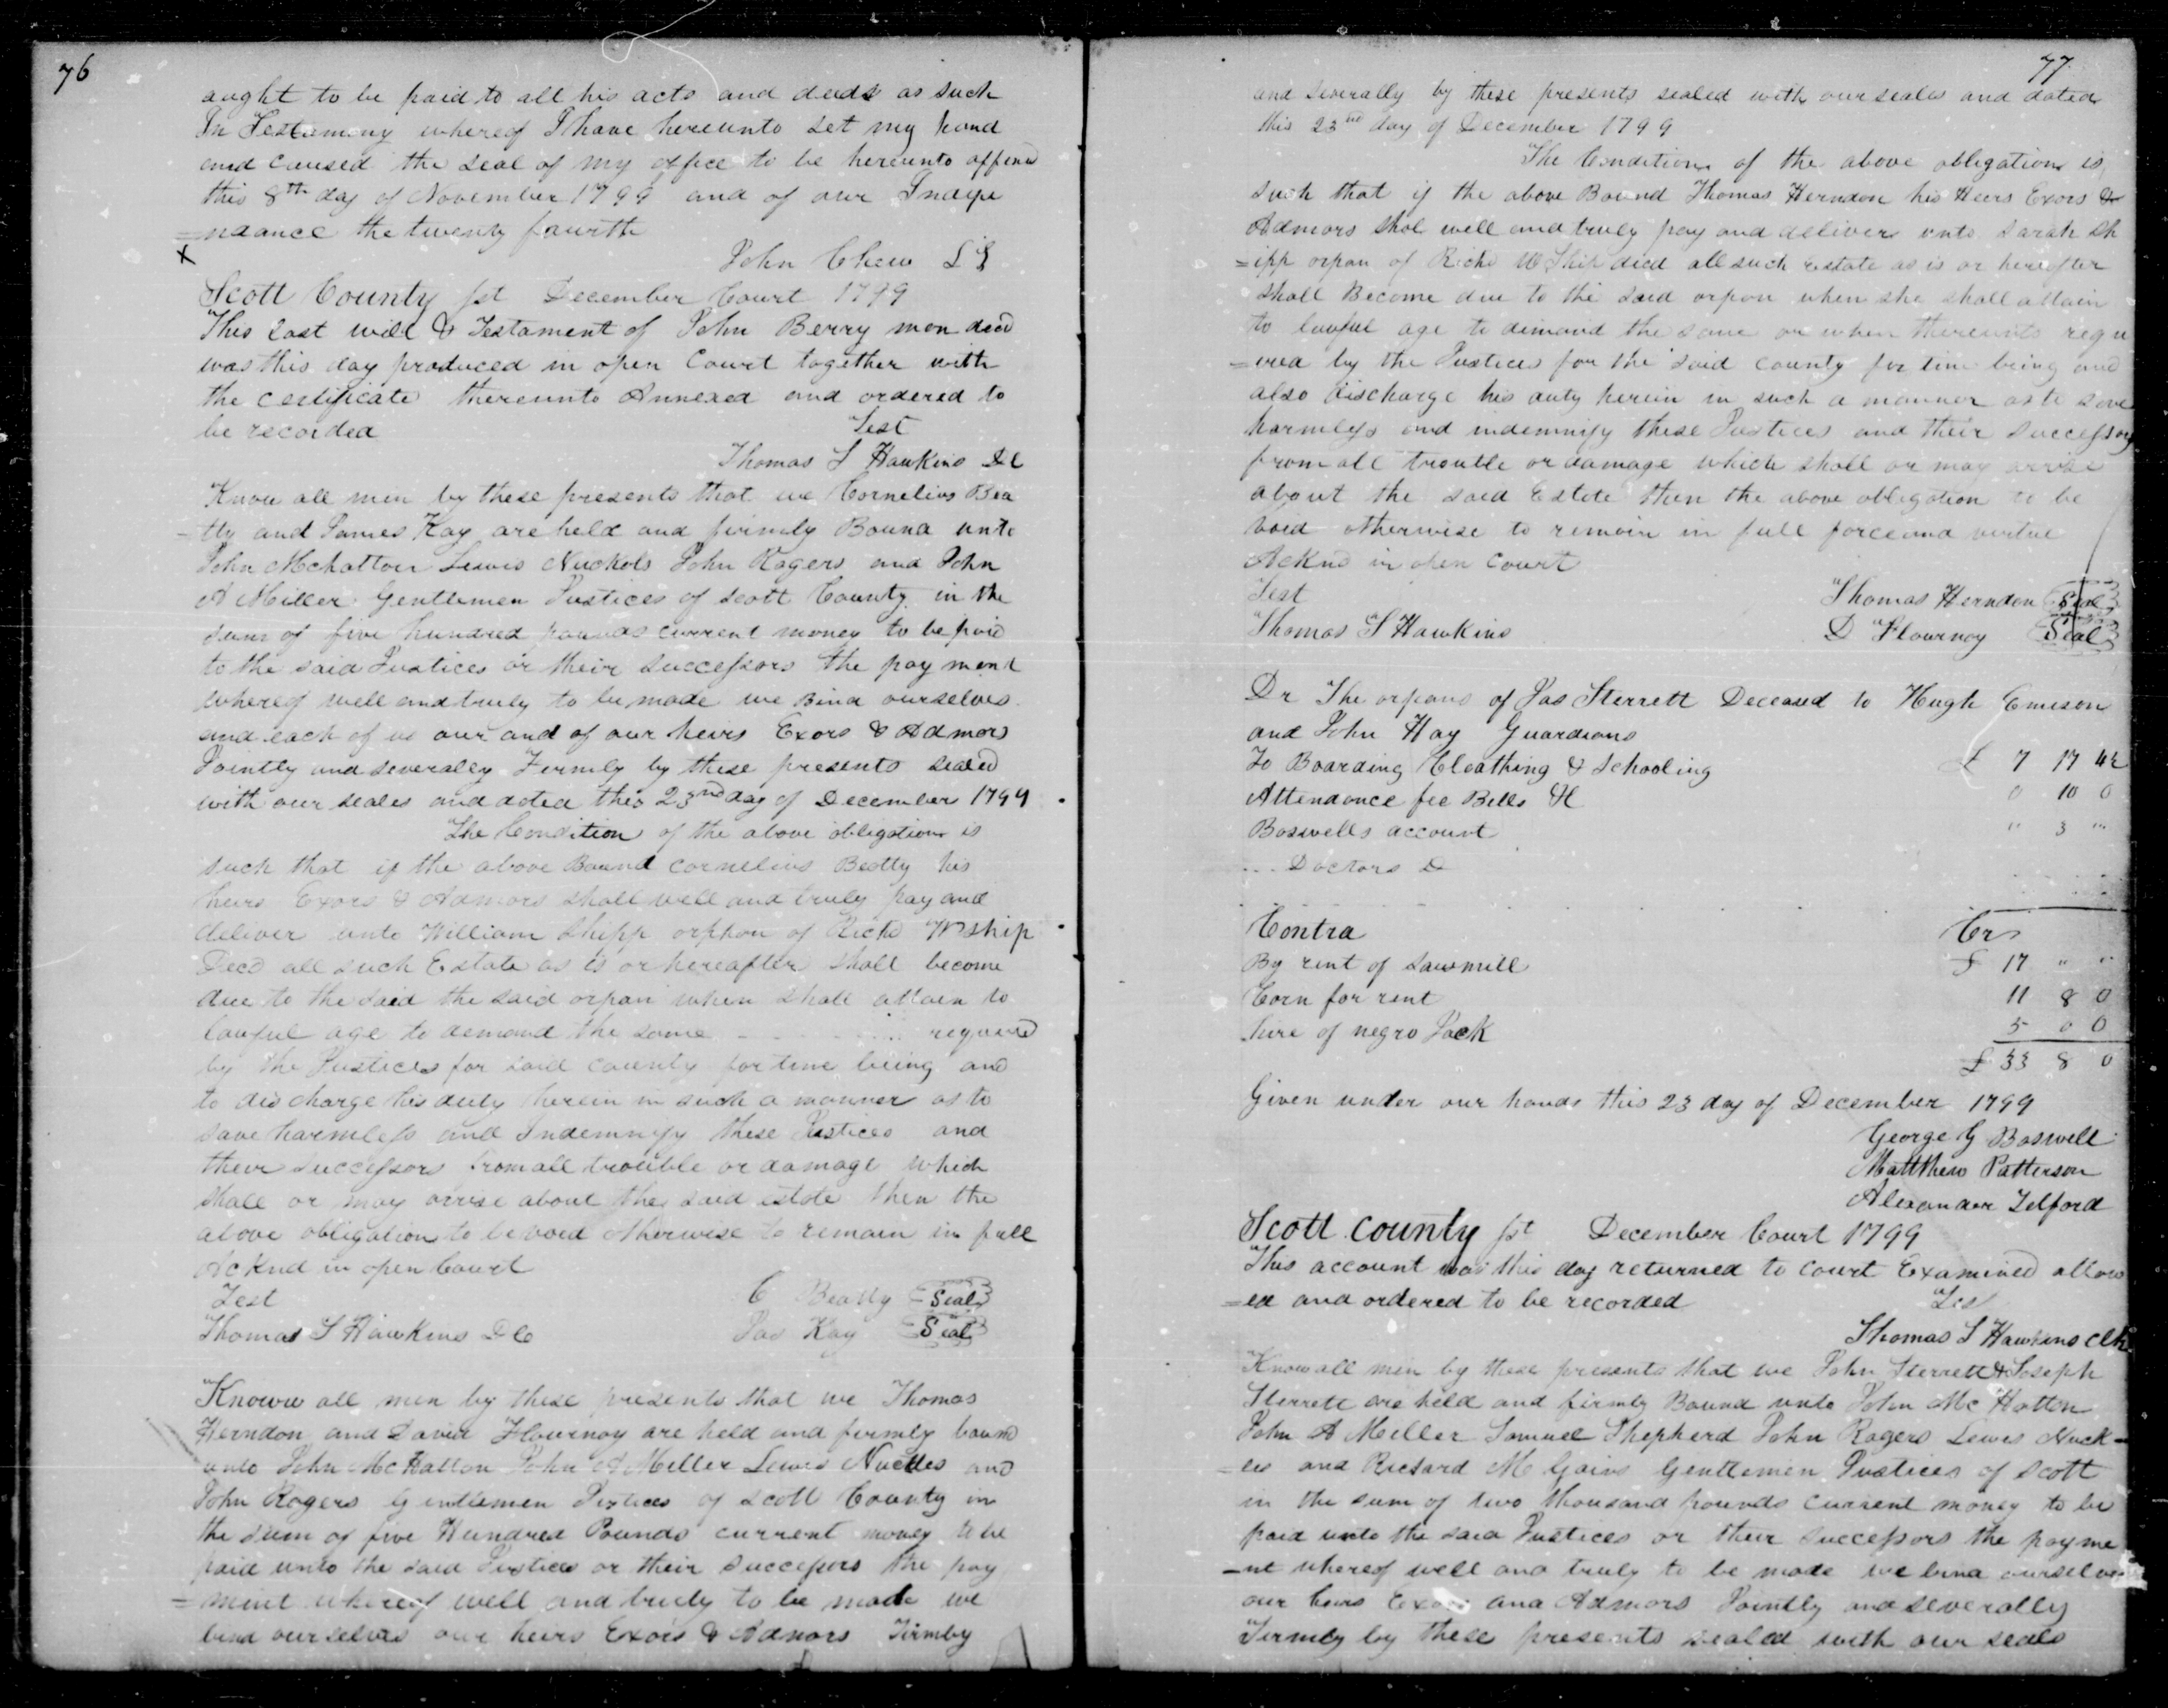 76
aught to be paid to all his acts and deeds as such
In Testamony whereof I have hereunto set my hand
and caused the seal of my office to be hereunto affixed
this 8th day of November 1799 and of our Indepe
=ndance the twenty fourth
X
John Chew LS
Scott County sst December Court 1799
This last will & Testament of John Berry mon decd
was this day produced in open Court together with
the certificate thereunto Annexed and ordered to
be recorded Test
Thomas S Hawkins DC
Know all men by these presents that we Cornelius Bea
-tty and James Kay are held and firmly Bound unto
John Mchatton Lewis Nuckols John Rogers and John
A Miller Gentlemen Justices of Scott County in the
sum of five hundred pounds current money to be paid
to the said Justices or their successors the payment
whereof well and truly to be made we Bind ourselves
and each of us our and of our heirs Exors & Admors
Jointly and severally Firmly by these presents sealed
with our seales and dated this 23nd day of December 1799
The Condition of the above obligation is
such that if the above Bound cornelius Beatty his
heirs Exors & Admors shall well and truly pay and
deliver unto William Shipp orphan of Richd W ship
Decd all such Estate as is or hereafter shall become
due to the said the said orpan when shall attain to
lawful age to demand the same - - - - - required
by the Justices for said county for time being and
to discharge his duty herein in such a manner as to
save harmless and Indemnify these Justices and
their successors from all trouble or damage which
shall or may arrise about the said estate then the
above obligation to be void otherwise to remain in full
Acknd in open Court
Test C Beatty Seal
Thomas S Hawkins DC Jas Kay Seal
Knoww all men by these presents that we Thomas
Herndon and David Flournoy are held and firmly bound
unto John McHatton John A Miller Lewis Nuckles and
John Rogers Gentlemen Justices of Scott County in
the sum of five Hundred Pounds current money to be
paid unto the said Justices or their successors the pay
=ment whereof well and truly to be made we
bind ourselves our heirs Exors & Admors Firmly
77
and severally by these presents sealed with our seales and dated
this 23nd day of December 1799
The Condition of the above obligation is
such that if the above Bound Thomas Herndon his Heirs Exors &
Admors shal well and truly pay and deliver unto Sarah Sh
=ipp orpan of Richd W Ship decd all such Estate as is or hereafter
shall Become due to the said orpan when she shall attain
to lawful age to demand the same or when thereunto requ
=ired by the Justices for the said county for time being and
also discharge his duty herein in such a manner as to save
harmless and indemnify these Justices and their successors
from all trouble or damage which shall or may arrise
about the said Estate then the above obligation to be
void otherwise to remain in full force and virtue
Acknd in open court
Test Thomas Herndon Seal
Thomas S Hawkins D Flournoy Seal
Dr The orpans of Jas Sterrett Deceased to Hugh Emison
and John Hay Guardians
To Boarding Cloathing & Schooling £ 7 17 4½
Attendance fee Bills &c 0 10 0
Boswells account " 3 "
Doctors D
Contra Cr
By rent of sawmill £ 17 " "
Corn for rent 11 8 0
hire of negro Jack 5 0 0
£ 33 8 0
Given under our hands this 23 day of December 1799
George G Boswell
Matthew Patterson
Alexander Telford
Scott County sst December Court 1799
This account was this day returned to court Examined allow
=ed and ordered to be recorded Tes
Thomas S Hawkins Clk
Know all men by these presents that we John Sterrett & Joseph
Sterrett are held and firmly Bound unto John Mc Hatton
John A Miller Samuel Shepherd John Rogers Lewis Nuck=
=les and Richard M Gains Gentlemen Justices of Scott
in the sum of two thousand pounds current money to be
paid unto the said Justices or their successors the payme
=nt whereof well and truly to be made we bind ourselves
our heirs Exors and Admors Jointly and severally
Firmly by these presents sealed with our seals